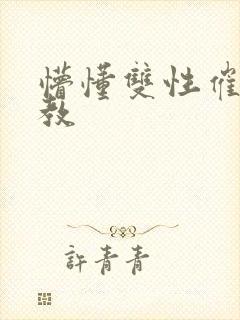 懵懂雙性催
教
許青青